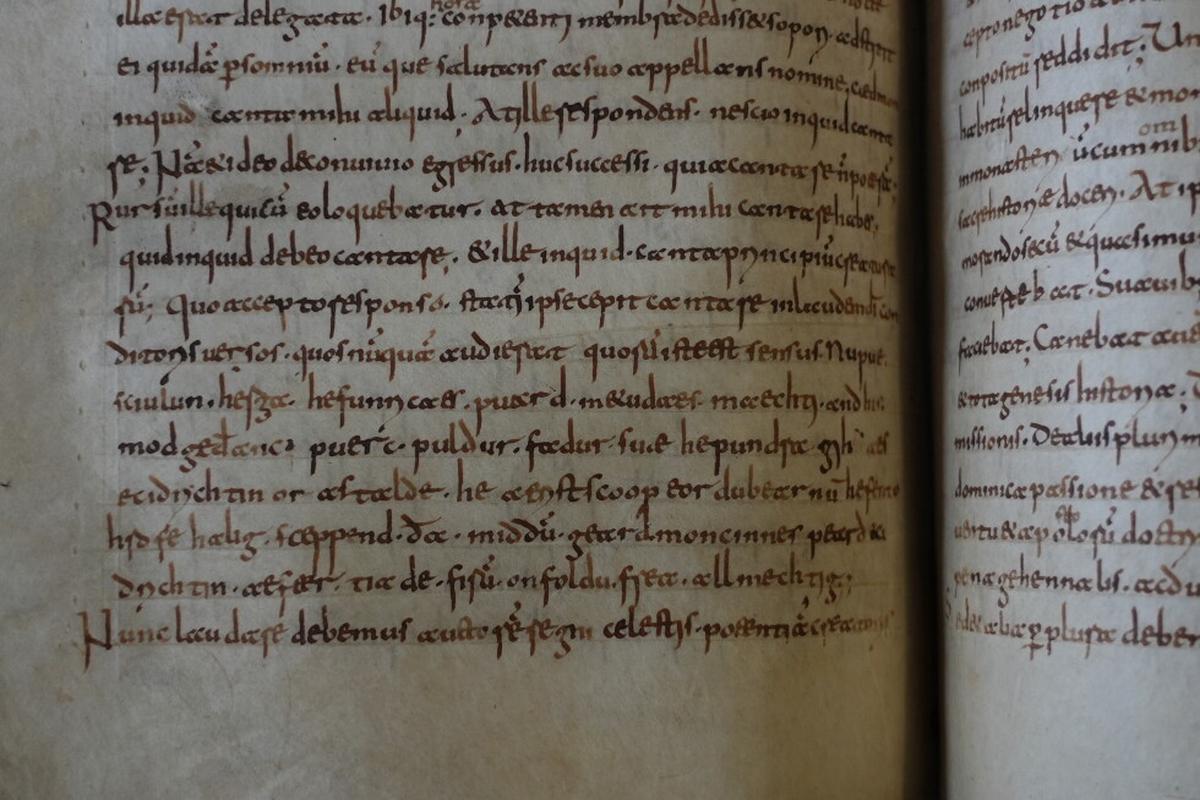 illa erat delegata. ibiq: hora conpetenti membra dedisset sopori. adstitit
ei quidā p somniū. eū que salutans ac suo appellans nomine, caedmon
inquid canta mihi aliquid. At ille respondens. nescio inquid canta
re; Nā et ideo de conuiuio egressus. huc successi. quia cantare n poterā.
Rursū ille qui cū eo loquebatur. at tamen ait mihi cantare habes,
quid inquid debeo cantare. et ille inquid. canta principiū creatura
rū; Quo accepto responso. statī ipse cepit cantare in laudem dī con
ditoris uersos. quos nūquā audierat quorū iste est sensus. Nu pue
sciulun. herga. hefunricaes. puard. metudaes. maechti. and his
mod gedanc. puerc. puldur. fadur. sue he pundra gih
ecidrichtin or astalde. he aerist scoop eordu bearnū
halig. sceppend. da. middū. geard moncinnes peard
drichtin. aefter. tia de. firū. on foldu. frea. allmechtig;
Nunc laudare debemus auctorē regni celestis. potentiā creatoris
cepto negotio
conpositū reddidit; Un
habitū relinquere et mon
in monasteri ū cum omnib
sacre historiae doceri. At ip
morando secū et quasi mu
conuertebat. Suauib
faciebat; Canebat
et tota genesis historia.
missionis. De aliis plurim
dominica passione et re
uentu et apostolorū doctri
gehennalis. ac du
debe